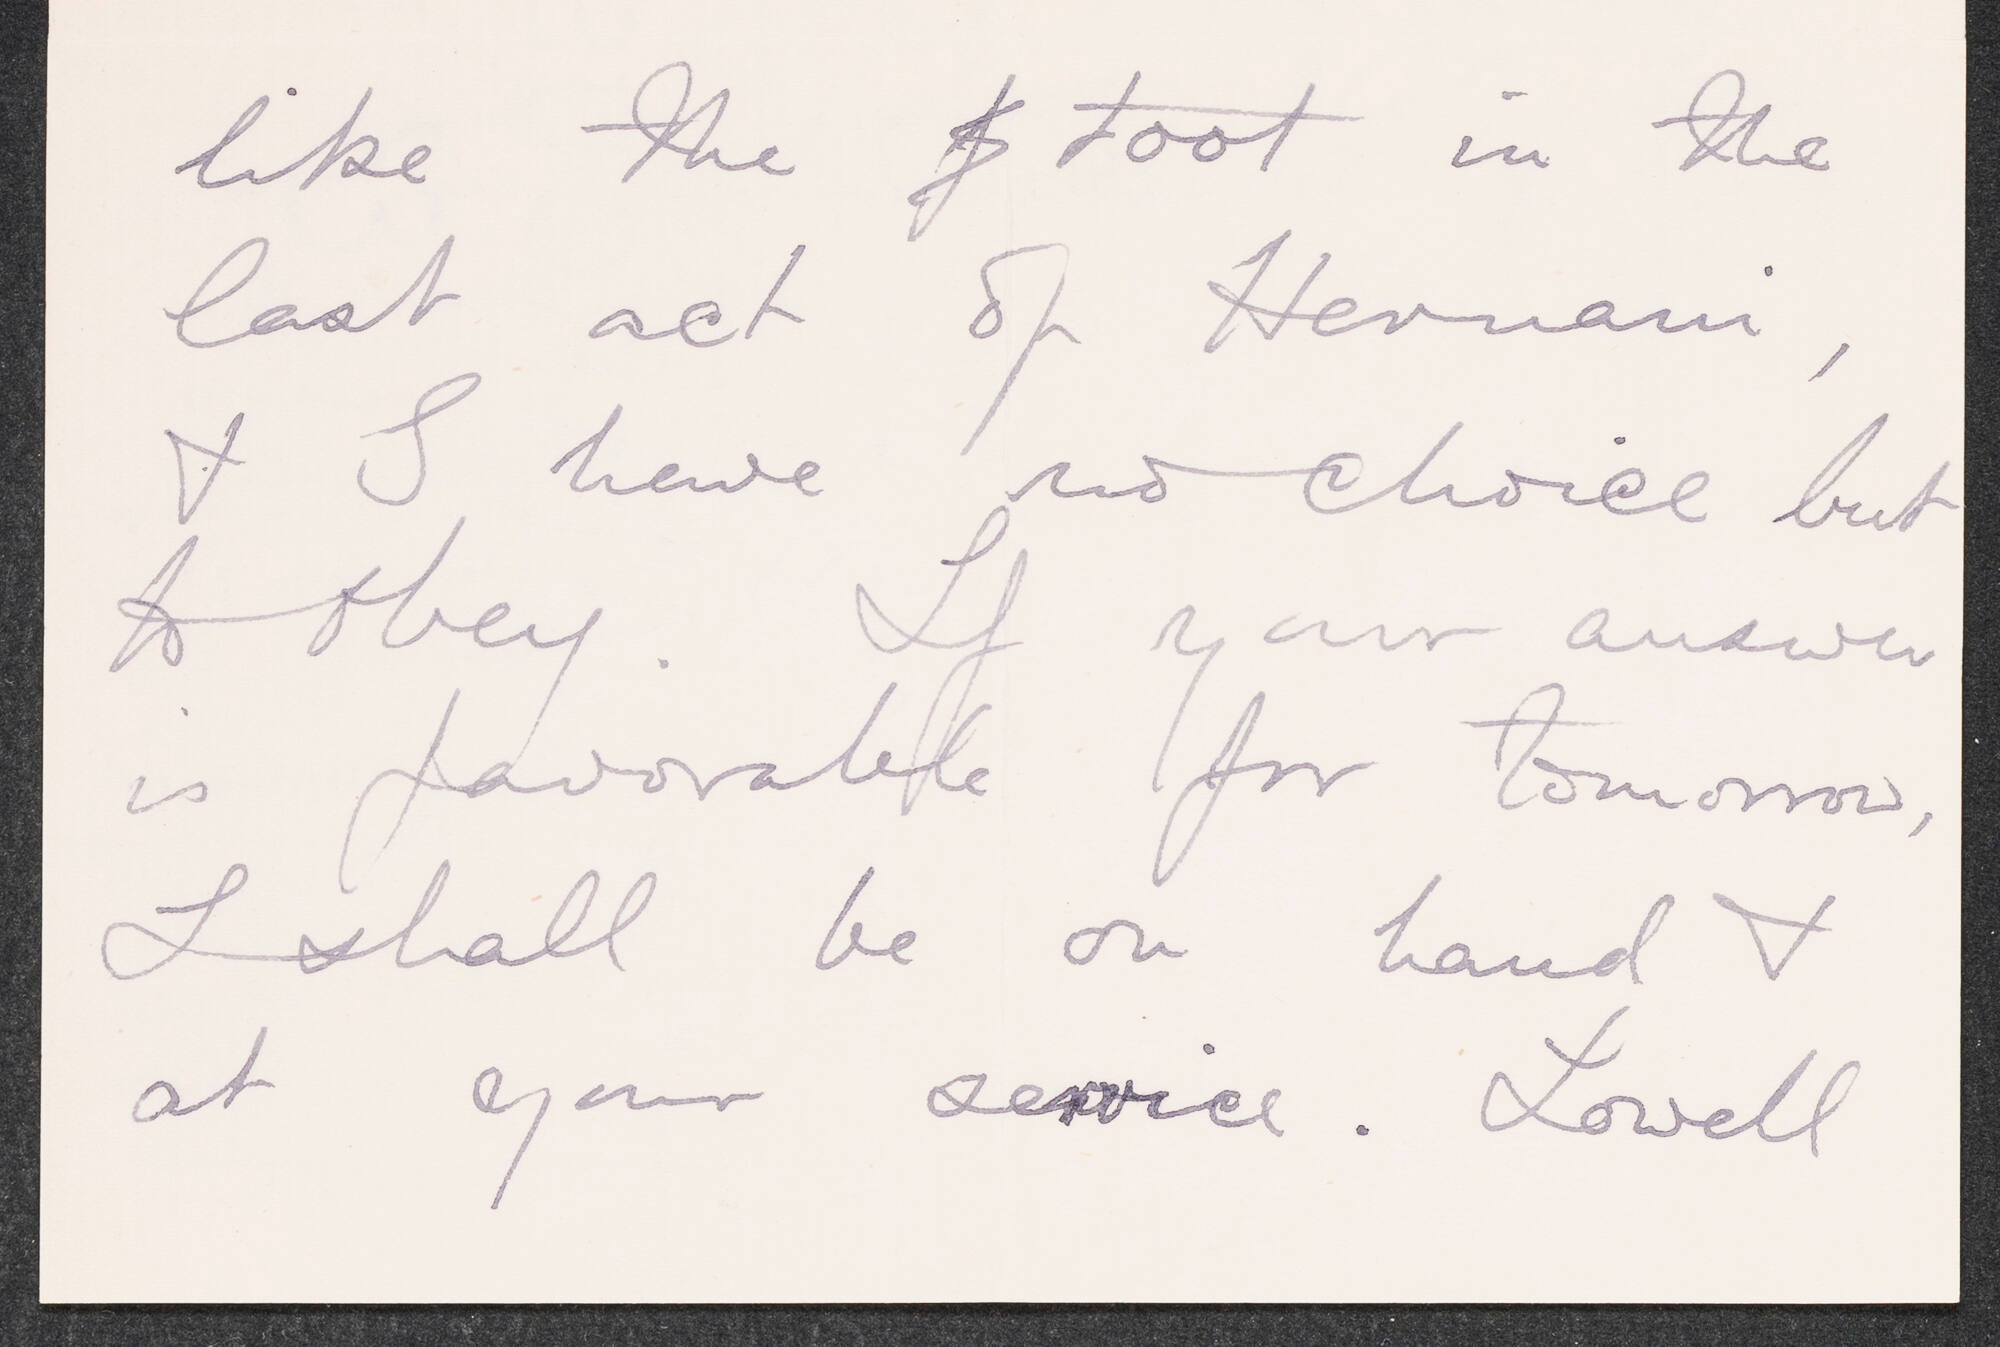 like the toot in the
last act of Hernani,
& I have no choice but
to obey. If your answer
is favorable for tomorrow,
I shall be on hand &
at your service. Lowell